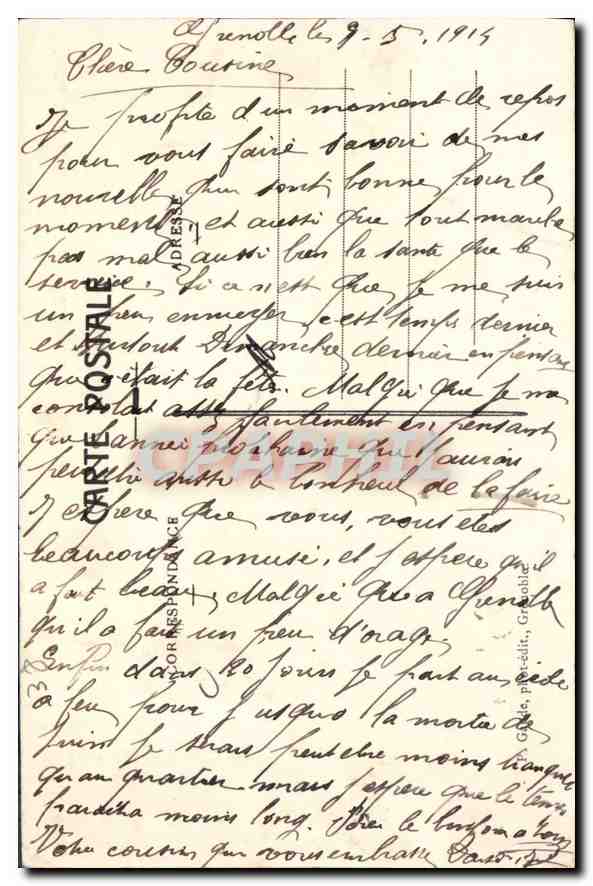 Grenoble le 9-5.1914
Chère Cousine
Je profite d'un moment de repos
pour vous faire savoir de mes
nouvelles qui sont bonne pour le
moment, et aussi que tout marche
pas mal, aussi bien la santé que le
service. Si ce n'est que je me suis
un peu ennuyer c'est temps dernier
et surtout Dimanche dernier en pensant
que c'était la fête. Malgré que je me
consolait assez facilement en pensant
que l'année prochaine que j'aurais
peut être aussi le bonheur de la faire
J'espère que vous, vous etes
beaucoups amusé, et j'espère qu'il
a fait beau, Malgré que a Grenoble
qu'il a fait un peu d'orage
Enfin dans 20 jours je part au
a feu pour jusquo la moitie de
Juin Je serais peut etre moins tranquil
qu'au quartier mais j'espere que le temps
paraitra moins long. le bonjour a tous
Votre cousin qui vous embrasse
38
CARTE POSTALE
ADRESSE
CORRESPONDANCE
phot-édit., Grenoble
CPAPHIL